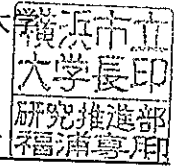 大
横浜市立
大学長印
研究推進部
福浦専用